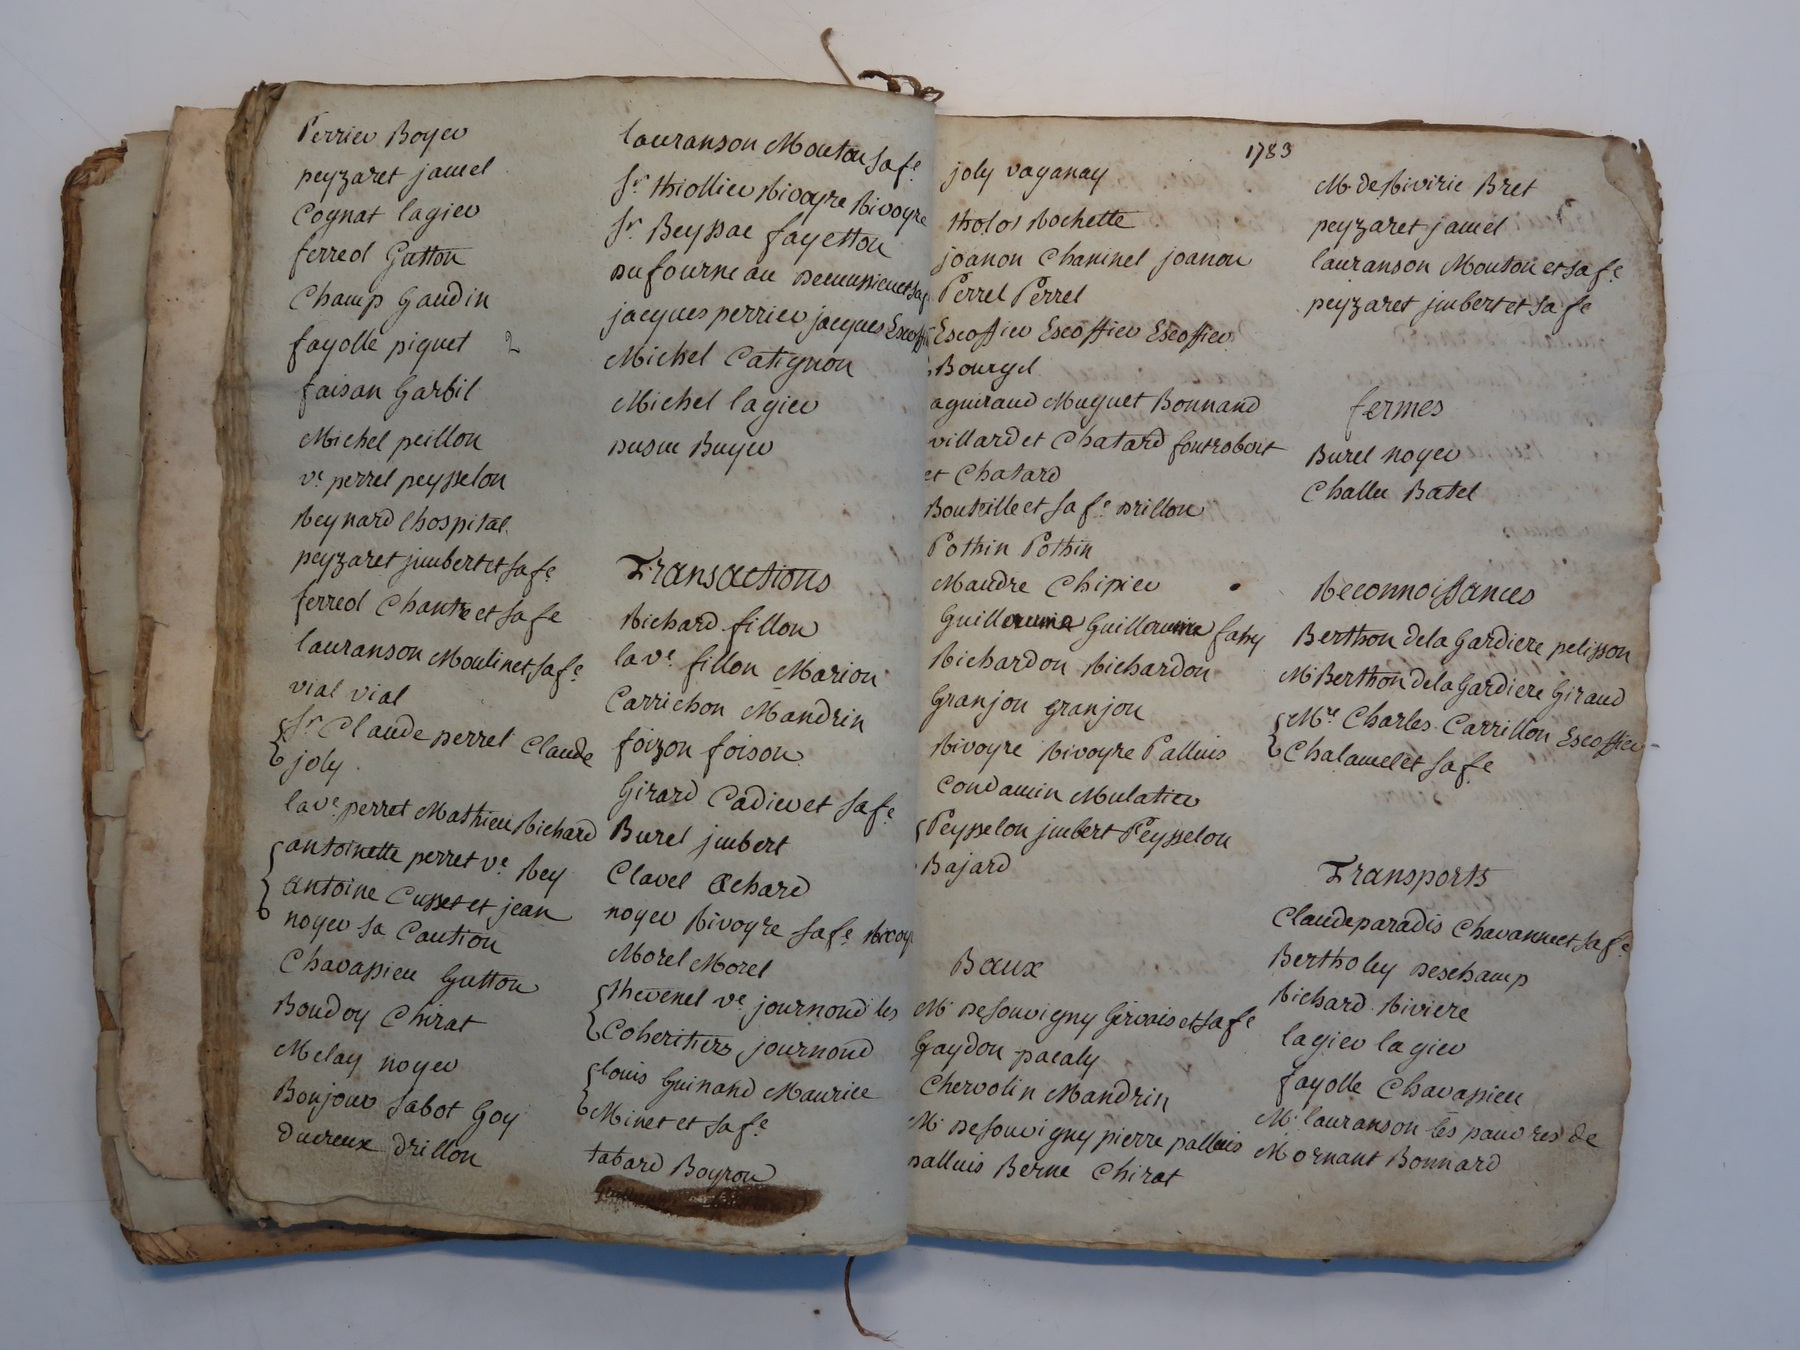 Perrier Boyer
peyzaret jamel
Cognat lagier
ferreol Gutton
Champ Gaudin
fayolle piguet 2
faisan Garbil
Michel peillon
ve perrel peysselon
Reynard lhospital
peyzaret jmbert et safe
ferreol Chantre et safe
lauranson Moulin et safe
vial vial
Sr Claude perret Claude
joly
la ve perret Mathieu Richard
antoinette perret ve Rey
antoine Cusset et jean
noyer sa Caution
Chavassieu Gutton
Boudoy Chirat
Melay noyer
Bonjour Sabot Goy
ducreux drillon
lauranson Mouton safe
Sr thiollier Rivoyre Rivoyre
Sr Beyssac fayetton
dufourneau
jacques perrier jacques
Michel Catignon
Michel lagier
Buyer
Transactions
Richard fillon
la ve fillon Marion
Carrichon Mandrin
foizon foison
Girard Cadier et safe
Burel jmbert
Clavel Achard
noyer Rivoyre safe
Morel Morel
thevenel ve journoud les
Coheritiers journoud
louis Guinand Maurice
Minet et safe
tabard Boyron
1783
joly vaganay
tholot Rochette
joanon Chaninel joanon
Perrel Perrel
Escoffier Escoffier Escoffier
Bourgel
aguiraud Muguet Bonnand
villard et Chatard fontrobert
et Chatard
Bouteille et safe drillon
Pothin Pothin
Maudre Chipier
fahy
Richardon Richardon
Granjon granjon
Rivoyre Rivoyre Palluis
Condamin Mulatier
Peysselon jmbert Peysselon
Bajard
Baux
Mr desouvigny Gervais et safe
Gaydon pacaly
Chervolin Mandrin
Mr desouvigny pierre palluis
palluis Berne Chirat
Mr de Rivirie Bret
peyzaret jamel
lauranson Mouton et safe
peyzaret jmbert et safe
fermes
Burel noyer
Challu Batel
Reconnoissances
Berthon dela Gardiere pelisson
Mr Berthon dela Gardiere Giraud
Mre Charles Carrillon Escoffier
Chalamel et safe
Transports
Claude paradis Chavanne et safe
Bertholey deschamp
Richard Riviere
lagier lagier
fayolle Chavassieu
Mr lauranson les pauvres de
Mornant Bonnard